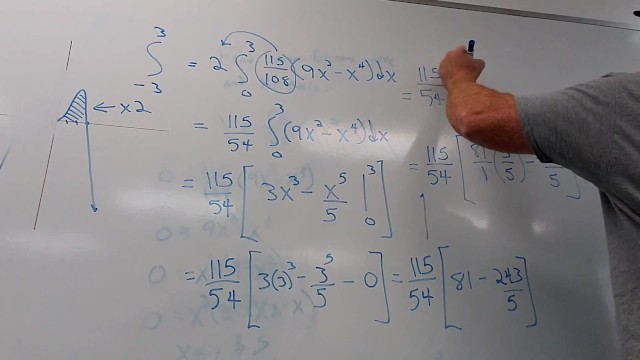 ∫₋₃³ = 2 ∫₀³ 115/108 (9x² - x⁴) dx
← x2
= 115/54 ∫₀³ (9x² - x⁴) dx
= 115/54 [ 3x³ - x⁵/5 |₀³ ]
= 115/54 [ 3(3)³ - 3⁵/5 - 0 ] = 115/54 [ 81 - 243/5 ]
= 115/54 [ 81/1 (5/5) -
= 115/54